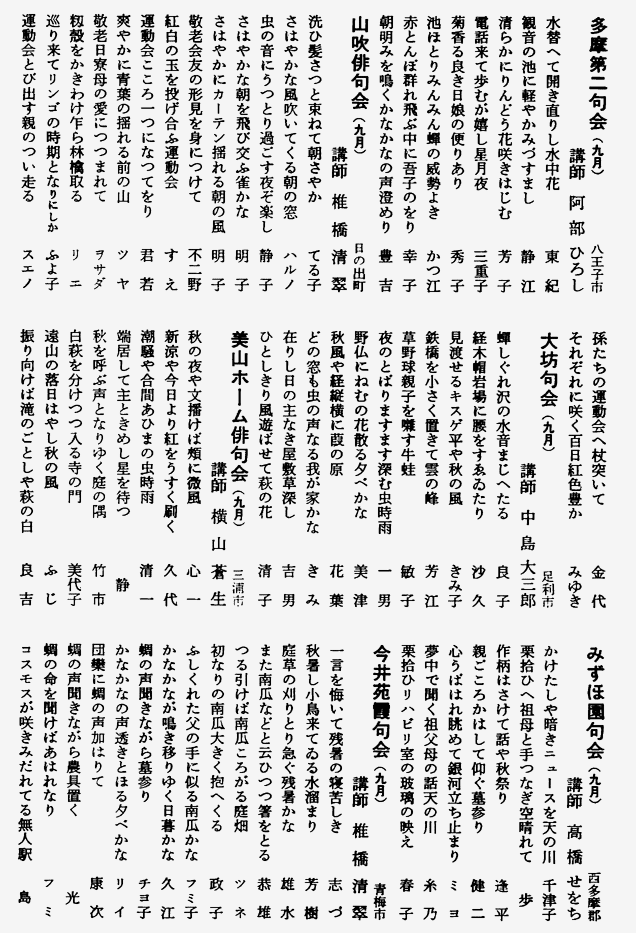 多摩第二句会（九月） 八王子市
講師 阿部 ひろし
水替へて開き直りし水中花 東紀
観音の池に軽やかみづすまし 静江
清らかにりんどう花咲きはじむ 芳子
電話来て歩むが嬉し星月夜 三重子
菊香る良き日娘の便りあり 秀子
池ほとりみんみん蟬の威勢よき かつ江
赤とんぼ群れ飛ぶ中に吾子のをり 幸子
朝明みを鳴くかなかなの声澄めり 豊吉
山吹俳句会（九月） 日の出町
講師 椎橋 清翠
洗ひ髪さつと束ねて朝さやか てる子
さはやかな風吹いてくる朝の窓 ハルノ
虫の音にうつとり過ごす夜ぞ楽し 静子
さはやかな朝を飛び交ふ雀かな 明子
さはやかにカーテン揺れる朝の風 明子
敬老会友の形見を身につけて 不二野
紅白の玉を投げ合ふ運動会 すえ
運動会こころ一つになつてをり 君若
爽やかに青葉の揺れる前の山 ツヤ
敬老日寮母の愛につつまれて ヲサダ
籾殻をかきわけ乍ら林檎取る リニ
巡り来てリンゴの時期となりにしか ふよ子
運動会とび出す親のつい走る スエノ
孫たちの運動会へ杖突いて 金代
それぞれに咲く百日紅色豊か みゆき
大坊句会（九月） 足利市
講師 中島 大三郎
蟬しぐれ沢の水音まじへたる 良子
経木帽岩場に腰をすゑゐたり 沙久
見渡せるキスゲ平や秋の風 きみ子
鉄橋を小さく置きて雲の峰 芳江
草野球親子を囃す牛蛙 敏子
夜のとばりますます深む虫時雨 一男
野仏にねむの花散る夕べかな 美津
秋風や経縦横に葭の原 花葉
どの窓も虫の声なる我が家かな きみ
在りし日の主なき屋敷草深し 吉男
ひとしきり風遊ばせて萩の花 清子
美山ホーム俳句会（九月） 三浦市
講師 横山 蒼生
秋の夜や文播けば頬に微風 心一
新涼や今日より紅をうすく刷く 久代
潮騒や合間あひまの虫時雨 清一
端居して主ときめし星を待つ 静
秋を呼ぶ声となりゆく庭の隅 竹市
白萩を分けつつ入る寺の門 美代子
遠山の落日はやし秋の風 ふじ
振り向けば滝のごとしや萩の白 良吉
みずほ園句会（九月） 西多摩郡
講師 高橋 せをち
かけたしや暗きニュースを天の川 千津子
栗拾ひへ祖母と手つなぎ空晴れて 歩
作柄はさけて話や秋祭り 逢平
親ごころかはして仰ぐ墓参り 健二
心うばはれ眺めて銀河立ち止まり ミヨ
夢中で聞く祖父母の話天の川 糸乃
栗拾ひリハビリ室の玻璃の映え 春子
今井苑霞句会（九月） 青梅市
講師 椎橋 清翠
一言を悔いて残暑の寝苦しき 志づ
秋暑し小鳥来てゐる水溜まり 芳樹
庭草の刈りとり急ぐ残暑かな 雄水
また南瓜などと云ひつつ箸をとる 恭雄
つる引けば南瓜ころがる庭畑 ツネ
初なりの南瓜大きく抱へくる 政子
ふしくれた父の手に似る南瓜かな フミ子
かなかなが鳴き移りゆく日暮かな 久江
蜩の声聞きながら墓参り チヨ子
かなかなの声透きとほる夕べかな リイ
団欒に蜩の声加はりて 康次
蜩の声聞きながら農具置く 光
蜩の命を聞けばあはれなり フミ
コスモスが咲きみだれてる無人駅 島